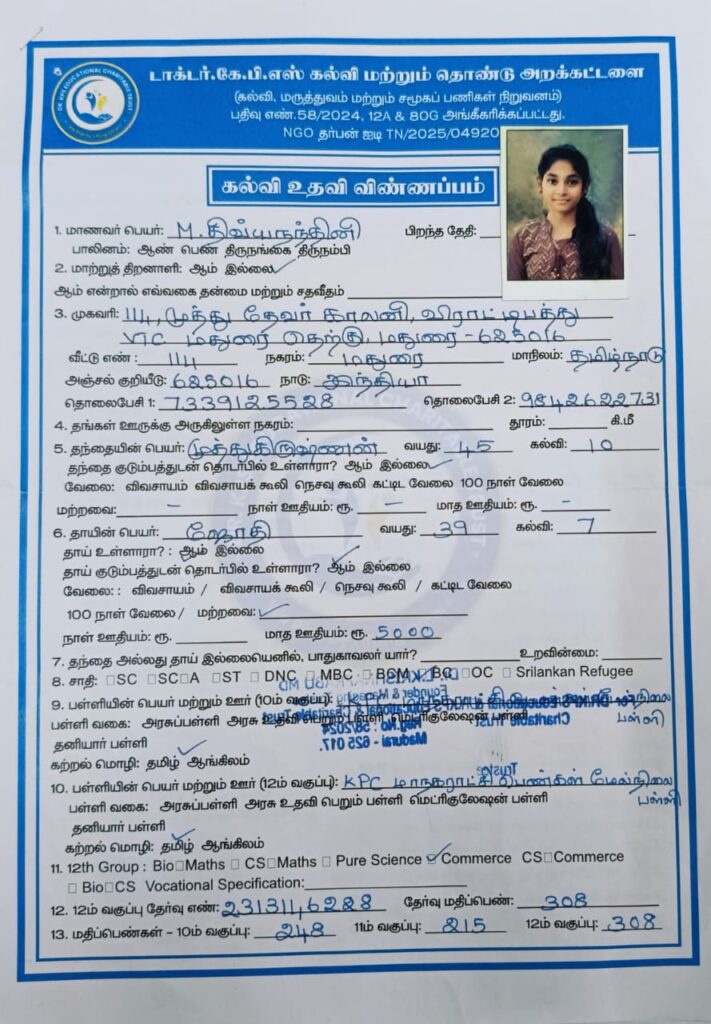 DR. KPS EDUCATIONAL CHARITABLE TRUST
டாக்டர்.கே.பி.எஸ் கல்வி மற்றும் தொண்டு அறக்கட்டளை
(கல்வி, மருத்துவம் மற்றும் சமூகப் பணிகள் நிறுவனம்)
பதிவு எண்.58/2024, 12A & 80G அங்கீகரிக்கப்பட்டது.
NGO தர்பன் ஐடி TN/2025/04920
கல்வி உதவி விண்ணப்பம்
1. மாணவர் பெயர்: M. திவ்யநந்தினி பிறந்த தேதி:
பாலினம்: ஆண் பெண் திருநங்கை திருநம்பி
2. மாற்றுத் திறனாளி: ஆம் இல்லை ✓
ஆம் என்றால் எவ்வகை தன்மை மற்றும் சதவீதம்
3. முகவரி: 114, முத்து தேவர் காலனி, விராட்டிபத்து
VTC மதுரை தெற்கு, மதுரை - 625016
வீட்டு எண் : 114 நகரம்: மதுரை மாநிலம்: தமிழ்நாடு
அஞ்சல் குறியீடு: 625016 நாடு: இந்தியா
தொலைபேசி 1: 7339125528 தொலைபேசி 2: 9842622731
4. தங்கள் ஊருக்கு அருகிலுள்ள நகரம்: தூரம்: கி.மீ
5. தந்தையின் பெயர்: முத்துகிருஷ்ணன் வயது: 45 கல்வி: 10
தந்தை குடும்பத்துடன் தொடர்பில் உள்ளாரா? ஆம் இல்லை ✓
வேலை: விவசாயம் விவசாயக் கூலி நெசவு கூலி கட்டிட வேலை 100 நாள் வேலை
மற்றவை: - நாள் ஊதியம்: ரூ. - மாத ஊதியம்: ரூ. -
6. தாயின் பெயர்: ஜோதி வயது: 39 கல்வி: 7
தாய் உள்ளாரா? : ஆம் இல்லை
தாய் குடும்பத்துடன் தொடர்பில் உள்ளாரா? ஆம் இல்லை
வேலை: : விவசாயம் / விவசாயக் கூலி / நெசவு கூலி / கட்டிட வேலை
100 நாள் வேலை / மற்றவை: ✓
நாள் ஊதியம்: ரூ. மாத ஊதியம்: ரூ. 5000
7. தந்தை அல்லது தாய் இல்லையெனில், பாதுகாவலர் யார்? உறவின்மை:
8. சாதி: □SC □SC□A □ST □DNC □MBC □BCM □BC □OC □ Srilankan Refugee
9. பள்ளியின் பெயர் மற்றும் ஊர் (10ம் வகுப்பு): மேல்நிலை
பள்ளி
பள்ளி வகை: அரசுப்பள்ளி அரசு உதவி பெறும் பள்ளி மெட்ரிகுலேஷன் பள்ளி
தனியார் பள்ளி
Founder & Managing
Charitable Trust
Reg No : 58/2024
Madurai - 625 017.
கற்றல் மொழி: தமிழ் ஆங்கிலம்
Trustee
10. பள்ளியின் பெயர் மற்றும் ஊர் (12ம் வகுப்பு): KPC மாநகராட்சி பெண்கள் மேல்நிலை
பள்ளி
பள்ளி வகை: அரசுப்பள்ளி அரசு உதவி பெறும் பள்ளி மெட்ரிகுலேஷன் பள்ளி
தனியார் பள்ளி
கற்றல் மொழி: தமிழ் ஆங்கிலம்
11. 12th Group : Bio□Maths □ CS□Maths □ Pure Science ✓ Commerce CS□Commerce
□ Bio□CS Vocational Specification:
12. 12ம் வகுப்பு தேர்வு எண்: 2313146288 தேர்வு மதிப்பெண்: 308
13. மதிப்பெண்கள் - 10ம் வகுப்பு: 248 11ம் வகுப்பு: 215 12ம் வகுப்பு: 308